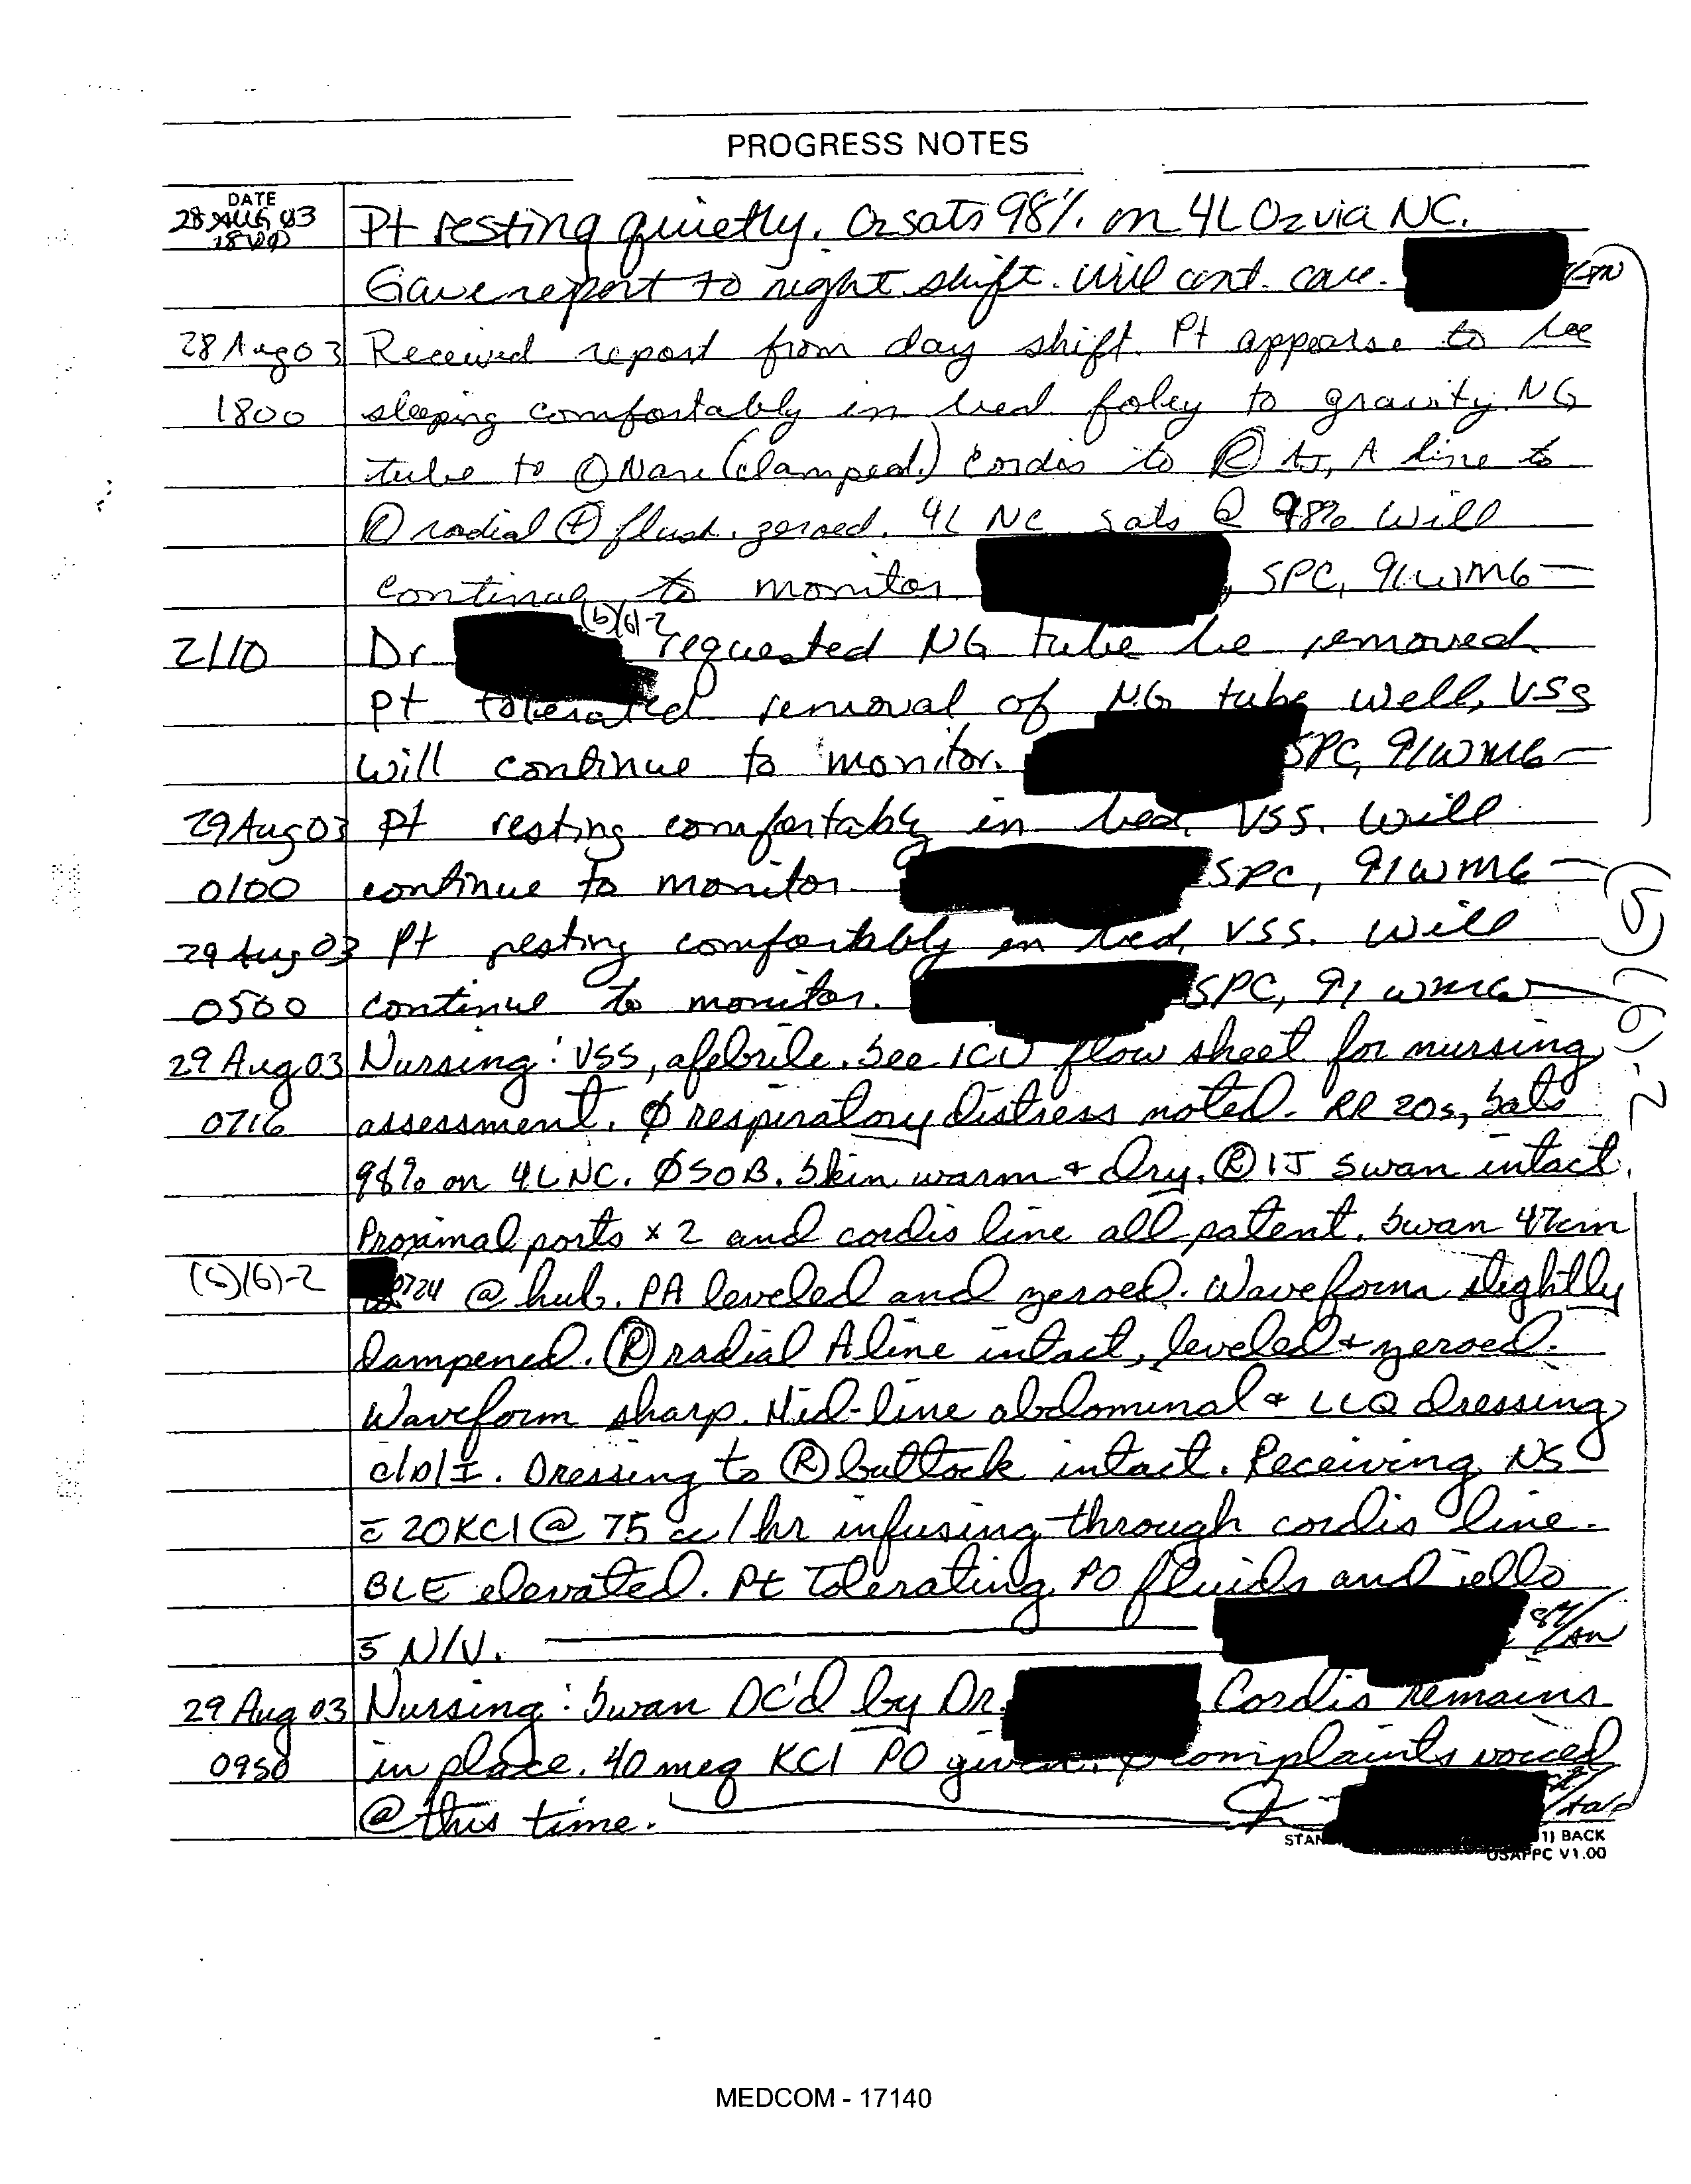 PROGRESS NOTES
DATE
28 AUG 03
1800
Pt resting quietly. O2 sats 98% on 4L O2 via NC.
Gave report to night shift. Will cont. care.
28 Aug 03 Received report from day shift. Pt appears to be
1800 sleeping comfortably in bed foley to gravity. NG
tube to Nare (clamped.) Cordis to Ⓡ IJ, A line to
radial ⊕ flush, zeroed. 4L NC sats @ 98% Will
continue to monitor , SPC, 91WM6
(b)(6)-2
2110 Dr requested NG tube be removed
pt tolerated removal of NG tube well, VSS
will continue to monitor. SPC, 91WM6
29 Aug 03 Pt resting comfortably in bed, VSS. Will
0100 continue to monitor. SPC, 91WM6
29 Aug 03 Pt resting comfortably in bed, VSS. Will
0500 continue to monitor. SPC, 91WM6
(b)(6)-2
29 Aug 03 Nursing: VSS, afebrile. See ICU flow sheet for nursing
0716 assessment. Ø respiratory distress noted. RR 20s, Sats
98% on 4L NC. Ø SOB. Skin warm + dry. Ⓡ IJ Swan intact.
Proximal ports x 2 and cordis line all patent. Swan 47cm
(b)(6)-2 0724 @ hub. PA leveled and zeroed. Waveform slightly
dampened. Ⓡ radial A line intact, leveled + zeroed.
Waveform sharp. Mid-line abdominal + LLQ dressing
c/D/I. Dressing to Ⓡ buttock intact. Receiving NS
c̄ 20KCl @ 75 cc/hr infusing through cordis line.
BLE elevated. Pt tolerating PO fluids and jello
s̄ N/V.
29 Aug 03 Nursing: Swan DC'd by Dr. Cordis remains
0950 in place. 40 meq KCl PO given. Ø complaints voiced
@ this time.
1) BACK
USAPPC V1.00
MEDCOM - 17140